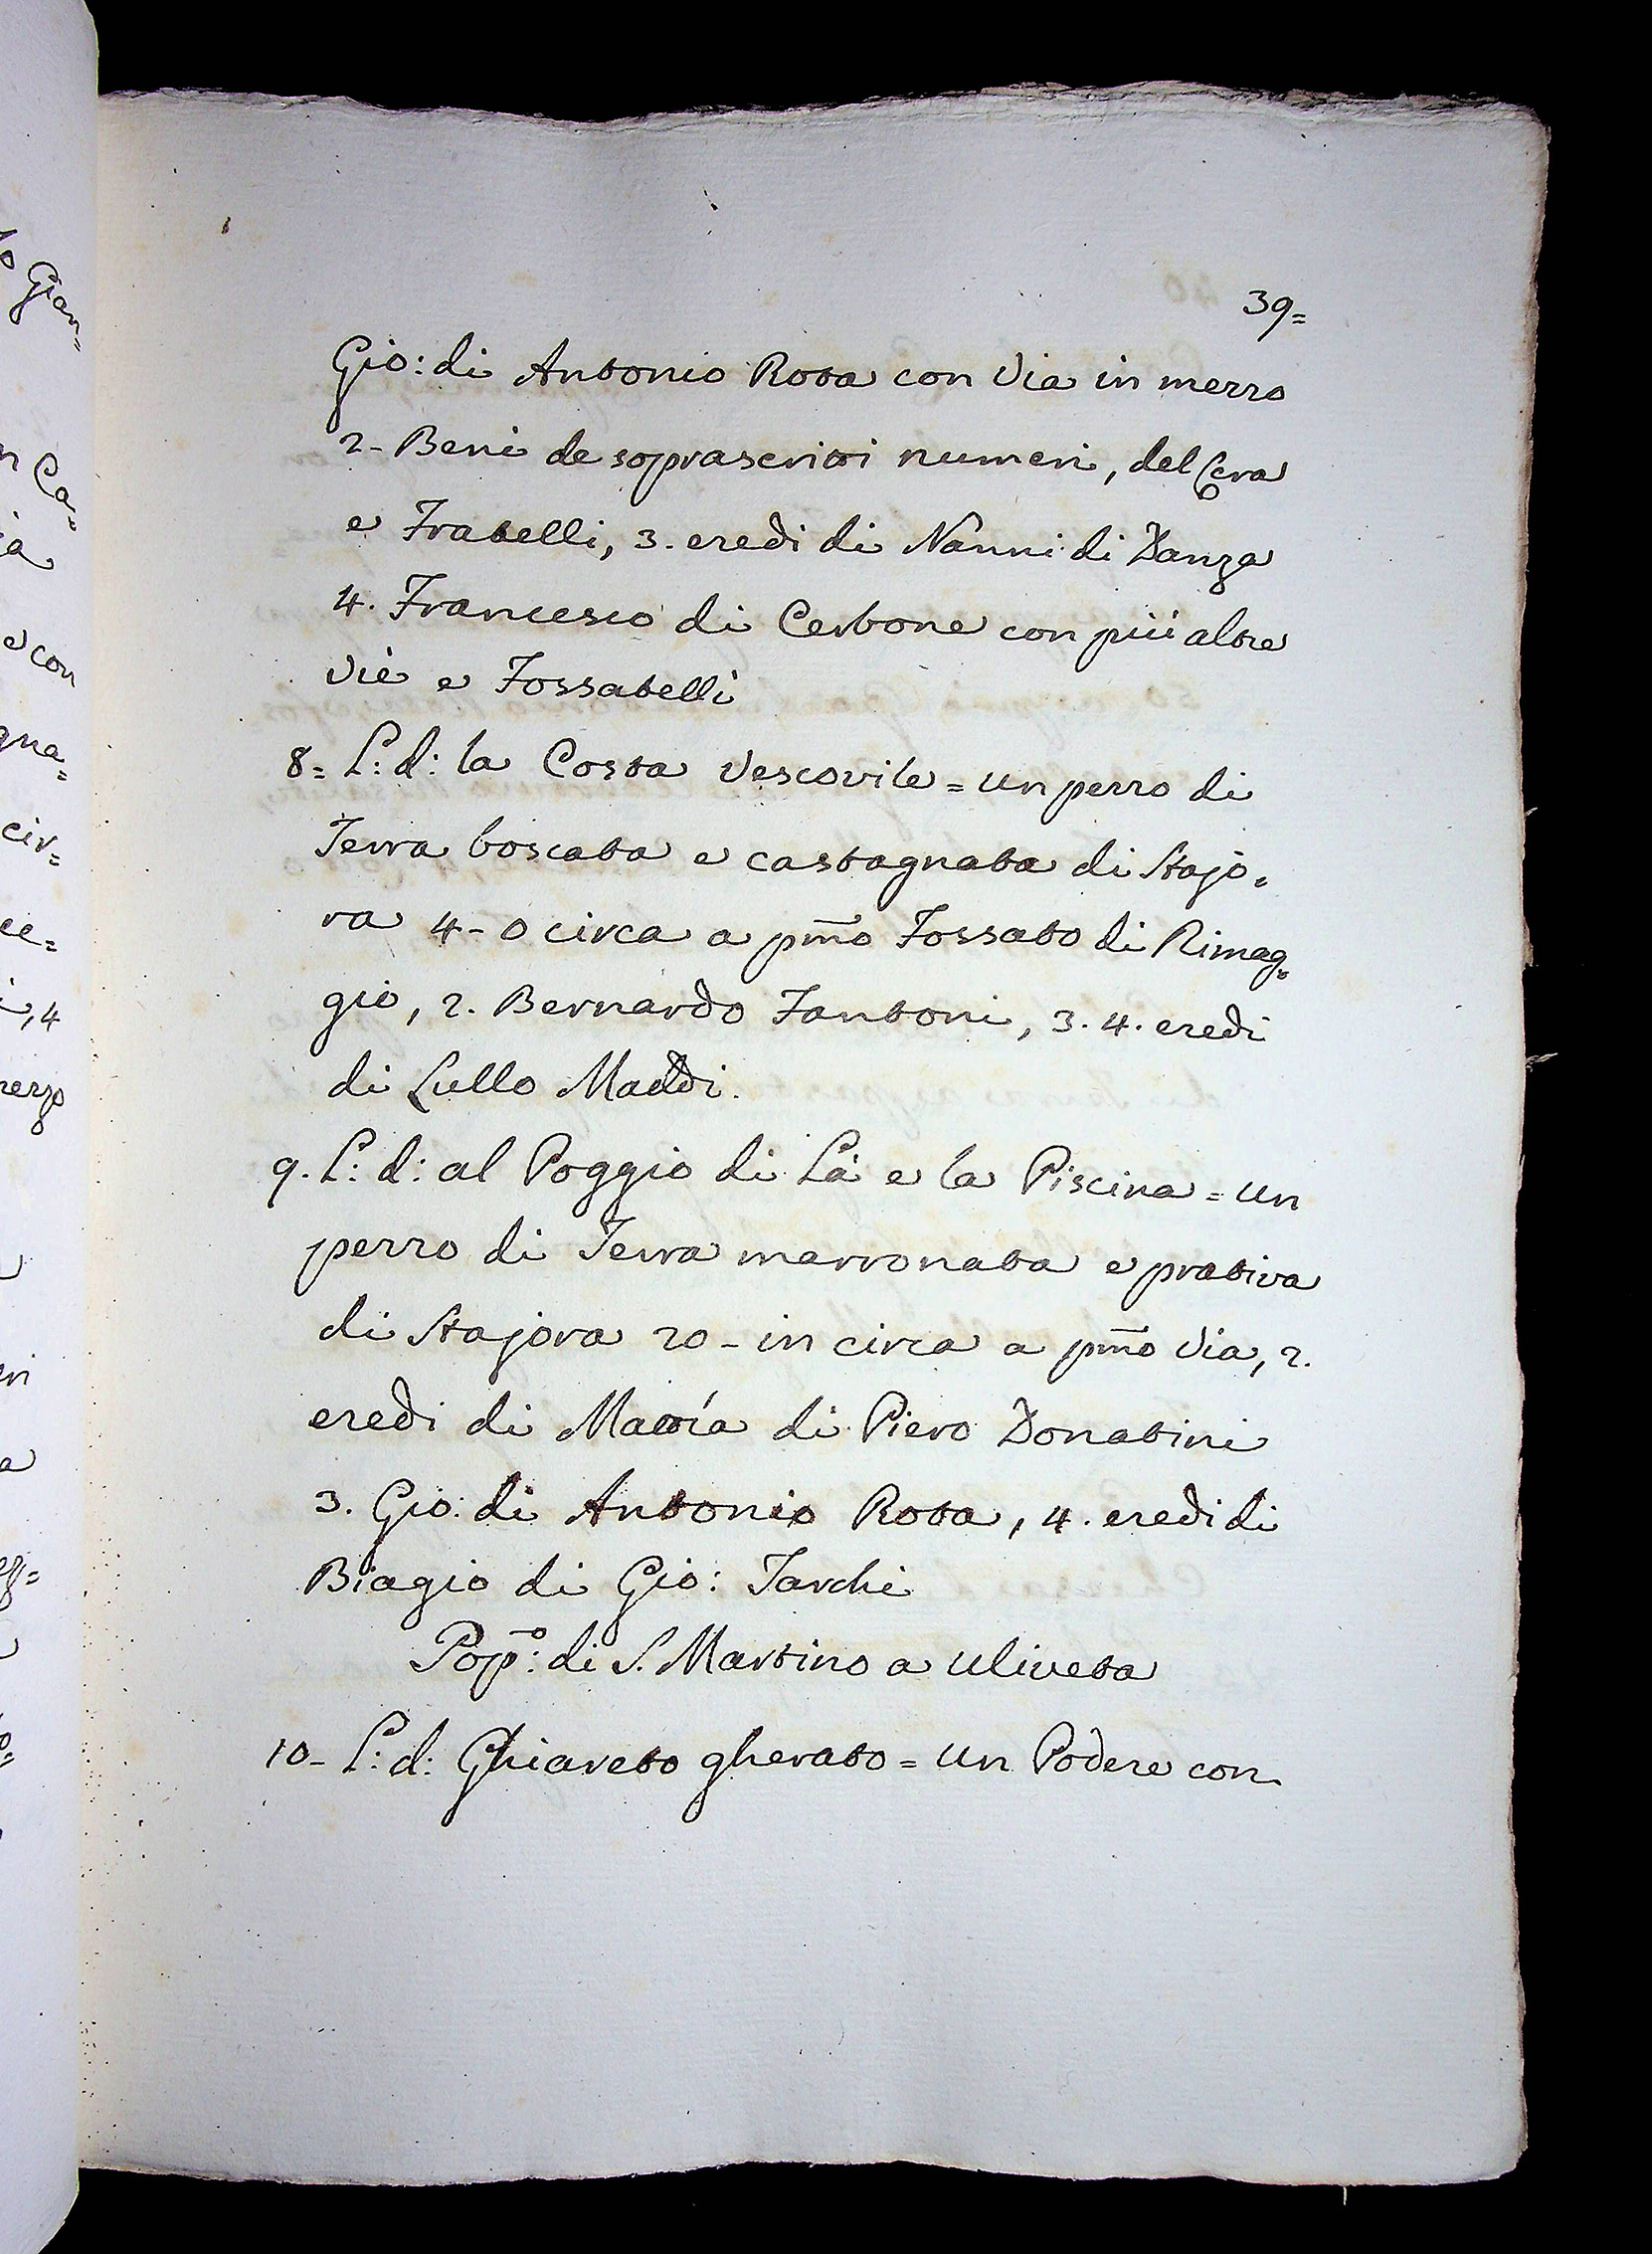 39=
Gio: di Antonio Rota con Via in mezzo
2- Beni de soprascritti numeri, del Cera
e Fratelli, 3. eredi di Nanni di Danza
4. Francesco di Cerbone con più altre
Vie e Fossatelli
8= L: d: la Costa Vescovile = un pezzo di
Terra boscata e castagnata di Stajo=
ra 4-0 circa a pmo Fossato di Rimag=
gio, 2. Bernardo Fantoni, 3. 4. eredi
di Lullo Maddi.
9. L: d: al Poggio di Là e la Piscina = un
pezzo di Terra marronata e prativa
di Stajora 20- in circa a pmo Via, 2.
eredi di Mattia di Piero Donatini
3. Gio: di Antonio Rota, 4. eredi di
Biagio di Gio: Tarchi
Popo: di S. Martino a Uliveta
10- L: d: Ghiareto gherato = un Podere con
o Gian=
n Ca=
ia
e con
gna=
cir=
ee=
i, 4
mezzo